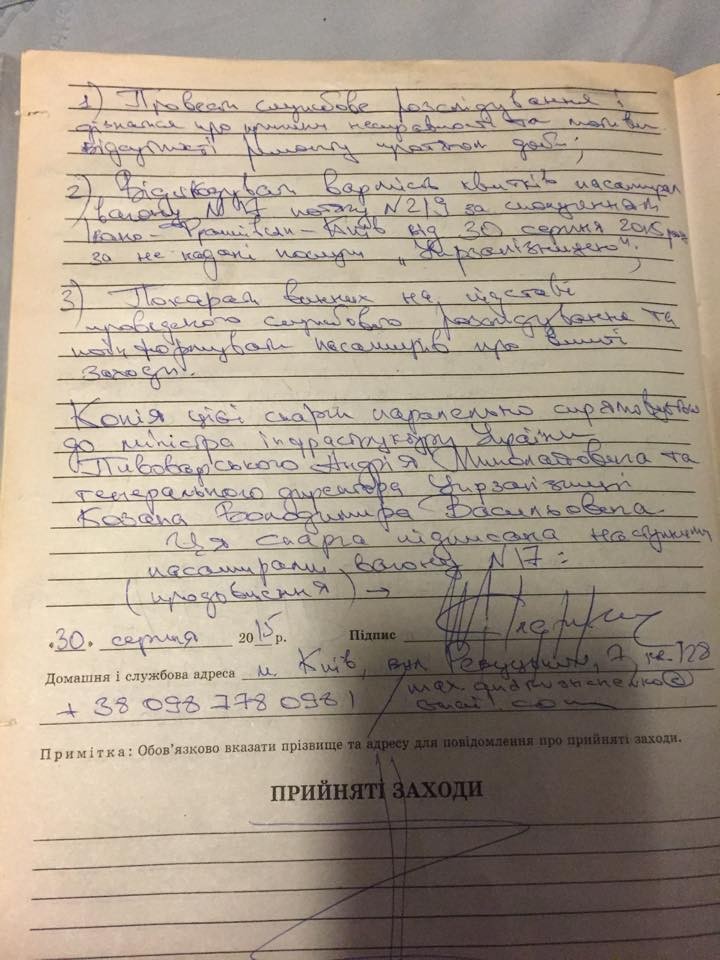 1) Провести службове розслідування і
дізнатися про причини несправності та мотиви
відсутності ремонту протягом доби;
2) Відшкодувати вартість квитків пасажирам
вагону №17 потягу №219 за сполученням
Івано-Франківськ-Київ від 30 серпня 2015 року
за не надані послуги „Укрзалізницею".
3) Покарати винних на підставі
проведеного службового розслідування та
поінформувати пасажирів про вжиті
заходи.
Копія цієї скарги паралельно спрямовується
до міністра інфраструктури України
Пивоварського Андрія Миколайовича та
генерального директора Укрзалізниці
Козака Володимира Васильовича.
Ця скарга підписана наступними
пасажирами вагону №17:
(продовження) →
«30» серпня 2015 р. Підпис
Домашня і службова адреса м. Київ, вул Ревуцького, 7 кв. 128
+38 098 778 0981
Примітка: Обов'язково вказати прізвище та адресу для повідомлення про прийняті заходи.
ПРИЙНЯТІ ЗАХОДИ